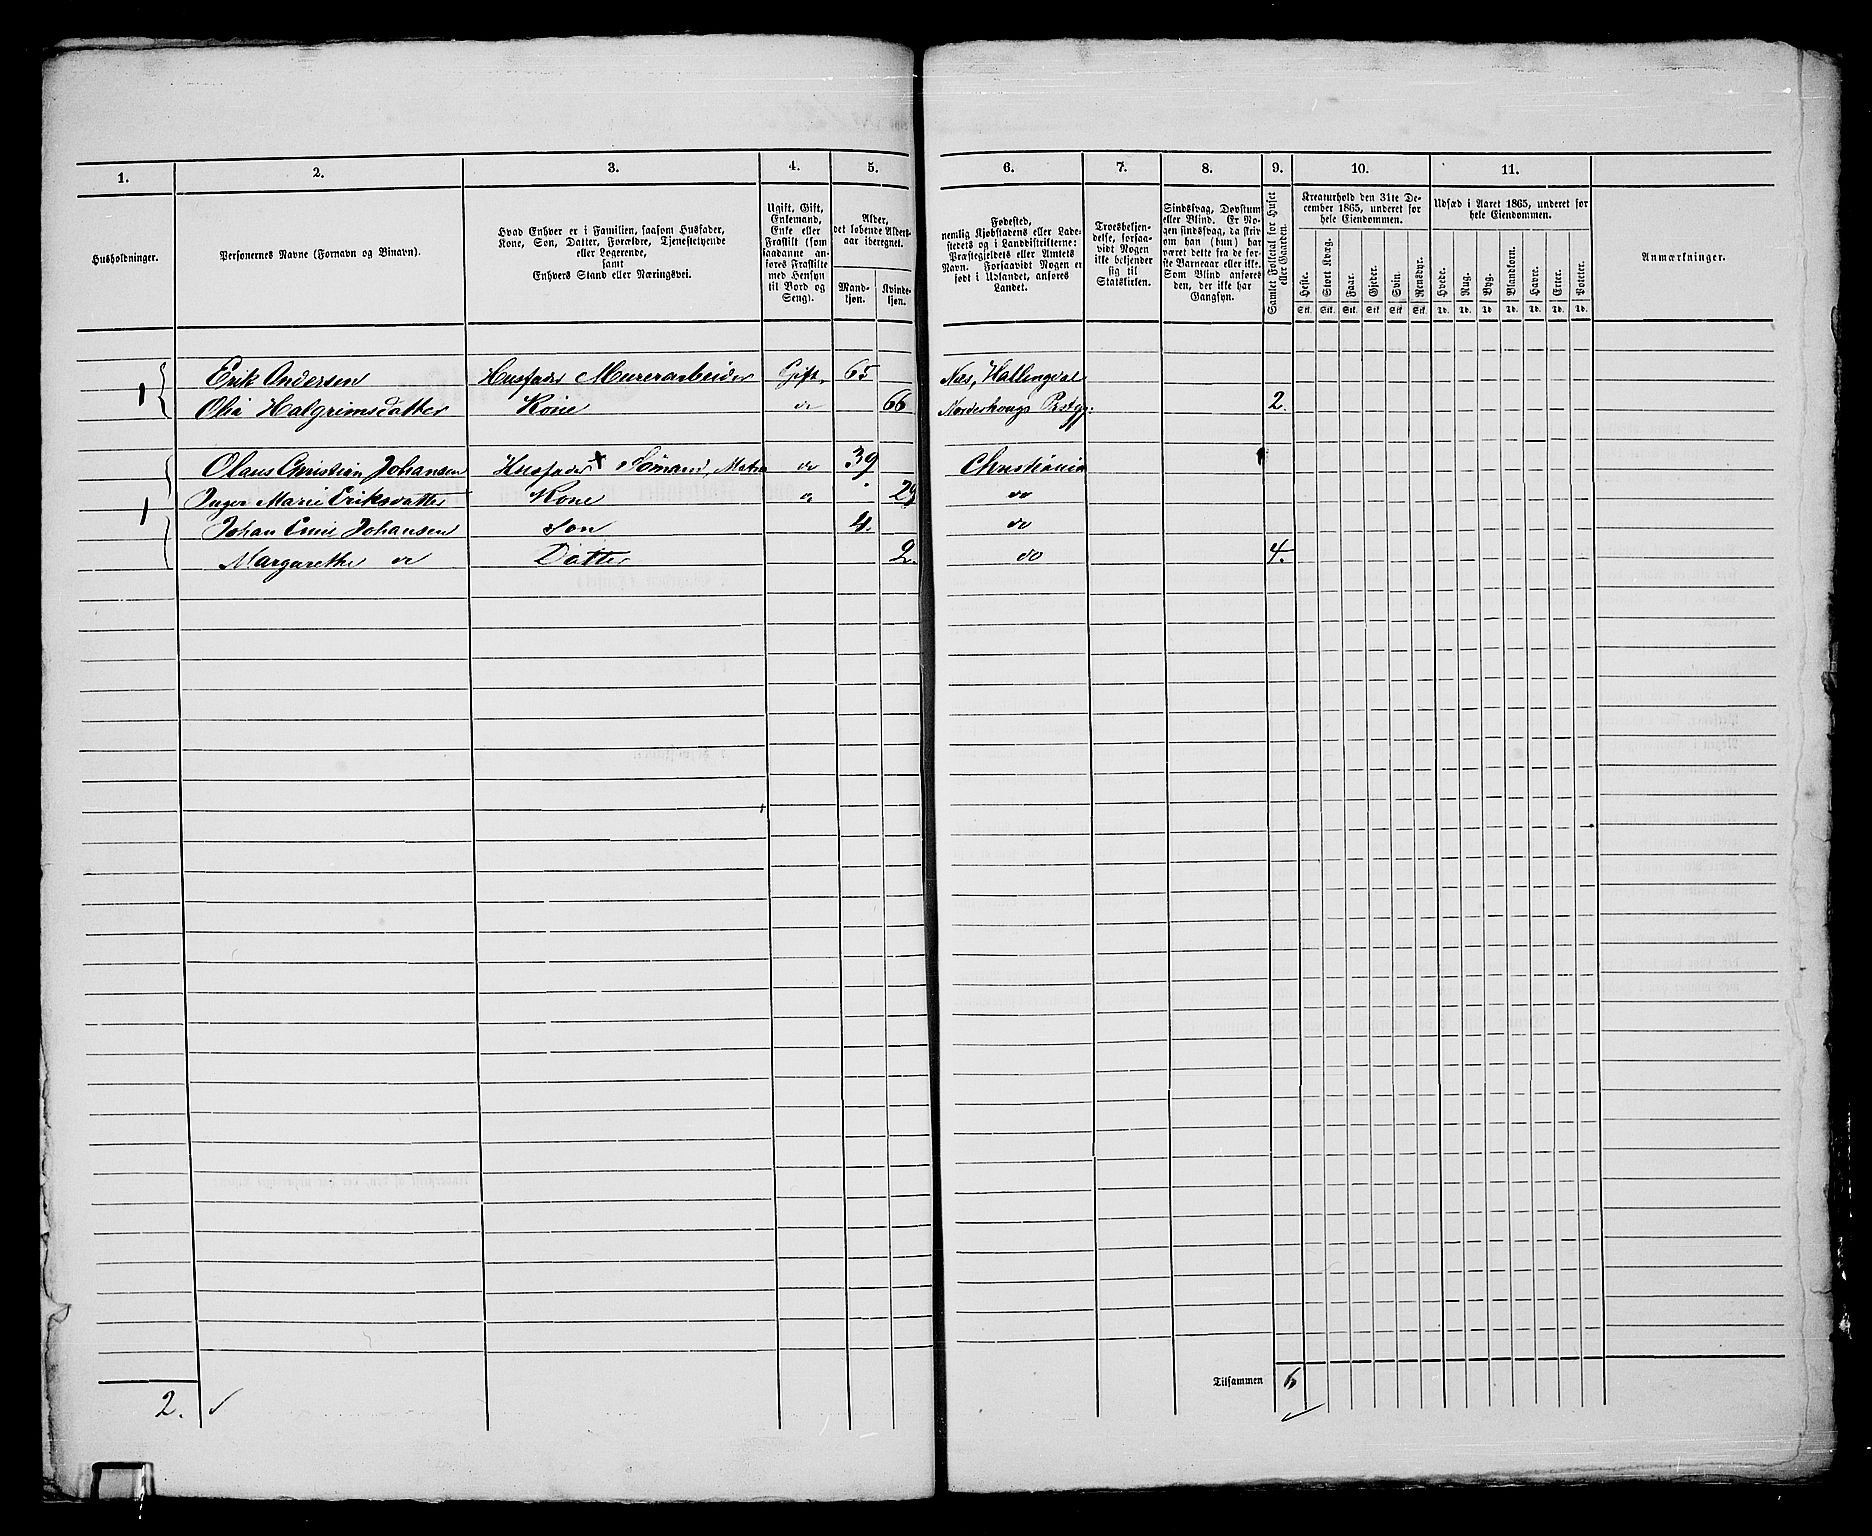 1. 2. 3. 4. 5. 6. 7. 8. 9. 10. 11.
Husholdninger.
Personernes Navne (Fornavn og Binavn).
Hvad Enhver er i Familien, saasom Husfader,
Kone, Søn, Datter, Forældre, Tjenestetyende
eller Logerende,
samt
Enhvers Stand eller Næringsvei.
Ugift, Gift,
Enkemand,
Enke eller
Fraskilt (som
saadanne an-
føres Fraskilte
med Hensyn
til Bord og
Seng).
Alder,
det løbende Alders-
aar iberegnet.
Mand-
kjøn.
Kvinde-
kjøn.
Fødested,
nemlig Kjøbstadens eller Lade-
stedets og i Landdistrikterne:
Præstegjeldets eller Amtets
Navn. Forsaavidt Nogen er
født i Udlandet, anføres
Landet.
Troesbekjen-
delse, forsaa-
vidt Nogen
ikke bekjender
sig til
Statskirken.
Sindssvag, Døvstum
eller Blind. Er No-
gen sindssvag, da skriv
om han (hun) har
været dette fra de for-
ste Barneaar eller ikke.
Som Blind anføres
den, der ikke har
Gangsyn.
Samlet Folketal for Huset
eller Gaarden.
Kreaturhold den 31te De-
cember 1865, underet for
hele Eiendommen.
Heste. Stort Kvæg. Faar. Gjeder. Svin. Rensdyr.
Stk. Stk. Stk. Stk. Stk. Stk.
Udsæd i Aaret 1865, underet for
hele Eiendommen.
Hvede. Rug. Byg. Blandkorn. Havre. Erter. Poteter.
Td. Td. Td. Td. Td. Td. Td.
Anmærkninger.
1 Erik Andersen Husfader Murerarbeider Gift. 65 Næs, Hallingdal
Olia Halgrimsdatter Kone do 66 Norderhougs Prstgj. 2.
1 Olaus Christian Johansen Husfader Sømand, do 39 Christiania
Inger Marie Eriksdatter Kone do 29 do
Johan Emil Johansen Søn 4. do
Margarethe do Datter 2. do 4.
Tilsammen 6
2.